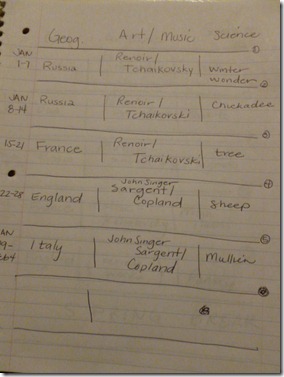 Geog. Art/Music Science
JAN
1-7 Russia Renoir/ Tchaikovsky winter wonder
JAN
8-14 Russia Renoir/ Tchaikovski Chickadee
15-21 France Renoir/ Tchaikovski tree
22-28 England John Singer Sargent/ Copland Sheep
Italy John Singer Sargent/ Copland